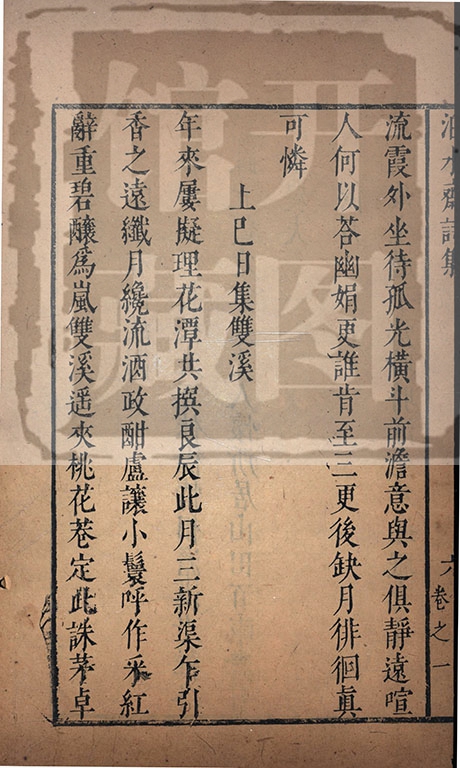 流霞外坐待孤光橫斗前澹意與之俱靜遠喧
人何以荅幽娟更誰肯至三更後缺月徘徊眞
可憐
上巳日集雙溪
年來屢擬理花潭共撰良辰此月三新渠乍引
香之遠纖月纔流酒政酣盧讓小鬟呼作釆紅
辭重碧釀爲嵐雙溪遥夾桃花菴定此誅茅卓
卷之一
开图
馆藏